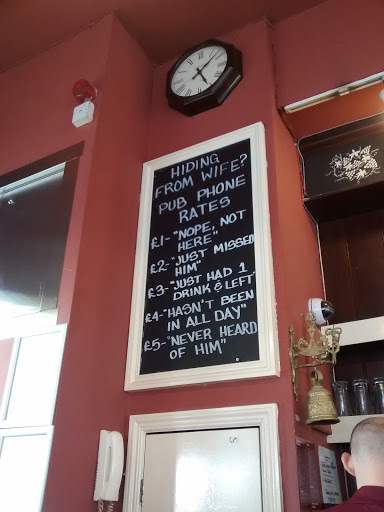 HIDING
FROM WIFE?
PUB PHONE
RATES
£1-"NOPE, NOT
HERE"
£2-"JUST MISSED
HIM"
£3-"JUST HAD 1
DRINK & LEFT"
£4-"HASN'T BEEN
IN ALL DAY"
£5-"NEVER HEARD
OF HIM"